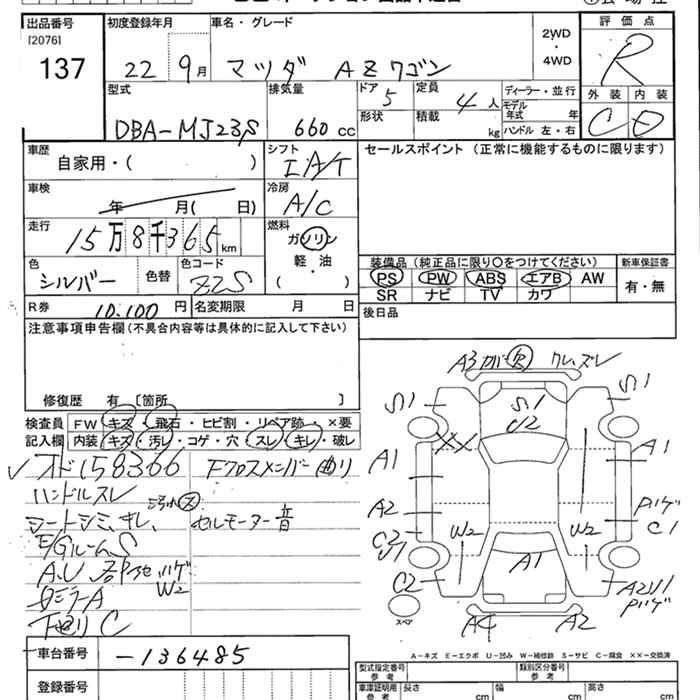 出品番号 初度登録年月 車名・グレード 2WD・4WD 評価点
[2076]
137 22 9月 マツダ AZワゴン R
型式 排気量 ドア 5 定員 4人 ディーラー・並行 外装 内装
DBA-MJ23S 660cc 形状 積載 kg モデル年式 年 ハンドル 左・右 C D
車歴 自家用・( ) シフト IAT セールスポイント (正常に機能するものに限ります)
車検 年 月( 日) 冷房 A/C
走行 15万8千365km 燃料 ガソリン 軽・油 ( ・ )
装備品 (純正品に限り○をつけてください) 新車保証書
色 シルバー 色替 色コード Z2S PS PW ABS エアB AW 有・無
SR ナビ TV カワ
R券 10,100円 名変期限 月 日 後日品
注意事項申告欄(不具合内容等は具体的に記入して下さい)
修復歴 有 [箇所 ]
検査員 FW キズ・飛石・ヒビ割・リペア跡・×要
記入欄 内装 キズ・汚レ・コゲ・穴・スレ・キレ・破レ
オド158366 Fクロスメンバー曲り
ハンドルスレ
シートシミ、キレ、 セルモーター音
E/GルームS
下廻りC
A3 カバー欠 スレ
S1 S1 S1
U2
XX
A1 A1
A2 ハゲ
C1
W2 W2
C2
A1
C2 A2
ハゲ
スペア A4 A2
A-キズ E-エクボ U-凹み W-補修跡 S-サビ C-腐食 XX-交換済
車台番号 -136485 型式指定番号 参考 類別区分番号 参考
登録番号 車庫証明用 参考 長さ cm 幅 cm 高さ cm